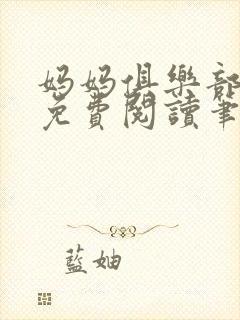 妈妈俱樂部
免費閱讀筆
藍妯